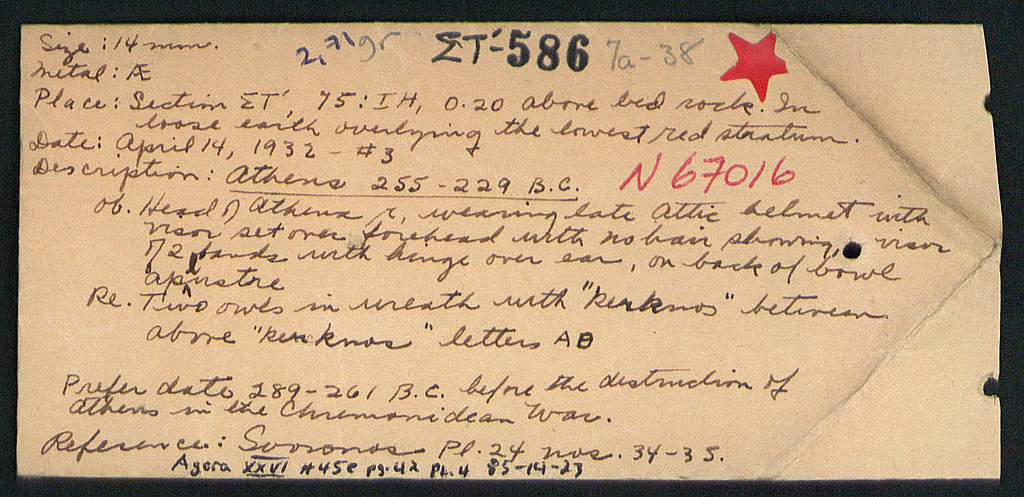 Size: 14 mm. 2,71 gr ΣΤ'-586 7a-38
Metal: Æ
Place: Section ΣΤ', 75: IH, 0.20 above bed rock. In
loose earth overlying the lowest red stratum.
Date: April 14, 1932 - #3
Description: Athens 255-229 B.C. N 67016
Ob. Head of Athena r, wearing late Attic helmet with
visor set over forehead with no hair showing, visor
of 2 bands with hinge over ear, on back of bowl
aplustre
Re. Two owls in wreath with "kerknos" between
above "kerknos" letters AΘ
Prefer date 289-261 B.C. before the destruction of
Athens in the Chremonidean War.
Reference: Svoronos Pl. 24 nos. 34-35.
Agora XXVI #45e pg. 42 Pl. 4 85-14-23